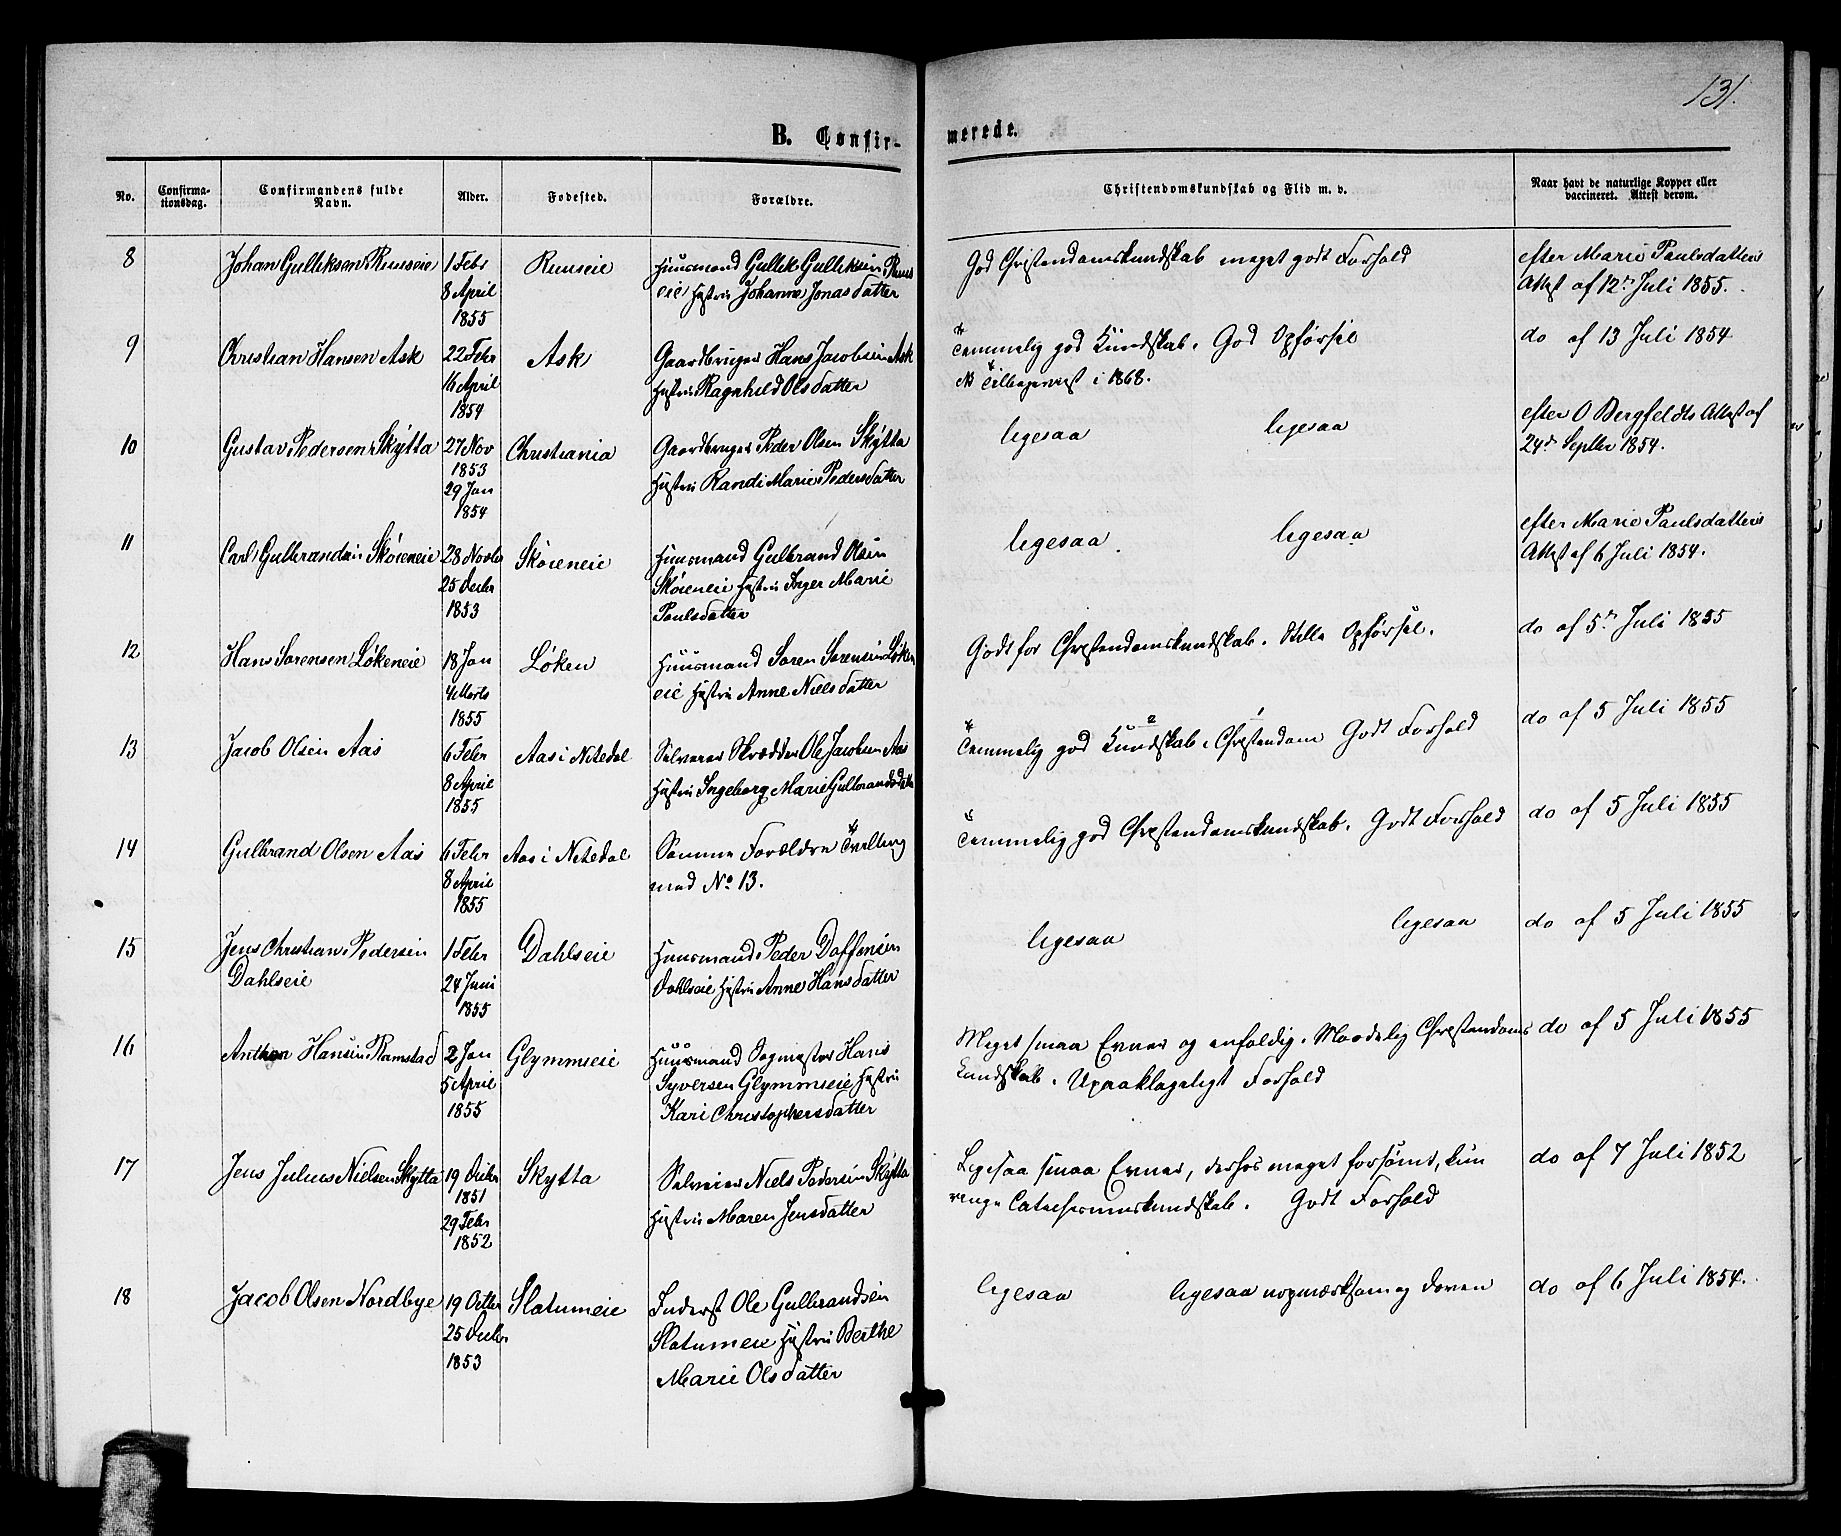 131.
B. Confirmerede.
No. Confirmationsdag. Confirmandens fulde Navn. Alder. Fødested. Forældre. Christendomskundskab og Flid m. v. Naar havt de naturlige Kopper eller vaccineret. Attest derom.
8 Johan Gulliksen Ruuseie 1 Febr Ruuseie Huusmand Gullik Gulliksen Ruus God Christendomskundskab meget godt Forhold efter Marie Paulsdatters
8 April eie Hustru Johanne Jonasdatter Attest af 12te Juli 1855.
1855
9 Christian Hansen Ask 22 Febr Ask Gaardbruger Hans Jacobsen Ask Temmelig god Kundskab. God Opførsel do af 13 Juli 1854
16 April Hustru Ragnhild Olsdatter NB Tilbageviist i 1868.
1854
10 Gustav Pedersen Skytta 27 Nov Christiania Gaardbruger Peder Olsen Skytta ligesaa ligesaa efter O Bergfeldts Attest af
1853 Hustru Randi Marie Pedersdatter 24de Septbr 1854.
29 Jan
1854
11 Carl Gulbrandsen Skøieneie 28 Novbr Skøieneie Huusmand Gulbrand Olsen ligesaa ligesaa efter Marie Paulsdatters
25 Decbr Skøieneie Hustru Inger Marie Attest af 6 Juli 1854.
1853 Paulsdatter
12 Hans Sørensen Løkeneie 18 Jan Løken Huusmand Søren Sørensen Løken Godtfor Christendomskundskab. Stille Opførsel. do af 5te Juli 1855
4 Marts eie Hustru Anne Nielsdatter
1855
13 Jacob Olsen Aas 6 Febr Aas i Nitedal Selveier Skrædder Ole Jacobsen Aas Temmelig god Kundskab. Christendom Godt Forhold do af 5 Juli 1855
8 April Hustru Ingeborg Marie Gulbrandsdatter
1855
14 Gulbrand Olsen Aas 6 Febr Aas i Nitedal Samme Forældre Tvilling Temmelig god Christendomskundskab. Godt Forhold do af 5 Juli 1855
8 April med No 13.
1855
15 Jens Christian Pedersen 1 Febr Dahlseie Huusmand Peder Daffinsen ligesaa ligesaa do af 5 Juli 1855
Dahlseie 24 Juni Dahlseie Hustru Anne Hansdatter
1855
16 Anthon Hansen Ramstad 2 Jan Glymmseie Huusmand Sagmester Hans Meget smaa Evner og enfoldig. Maadelig Christendoms do af 5 Juli 1855
5 April Syversen Glymmseie Hustru kundskab. Upaaklageligt Forhold
1855 Kari Christophersdatter
17 Jens Julius Nielsen Skytta 19 Decbr Skytta Selveier Niels Pedersen Skytta Ligesaa smaa Evner, derhos meget forsømt, kun do af 7 Juli 1852
1851 Hustru Maren Jensdatter ringe Catechismuskundskab. Godt Forhold
29 Febr
1852
18 Jacob Olsen Nordbye 19 Octbr Slatumeie Inderst Ole Gulbrandsen ligesaa ligesaa uopmærksom og doven do af 6 Juli 1854.
25 Decbr Slatumeie Hustru Berthe
1853 Marie Olsdatter